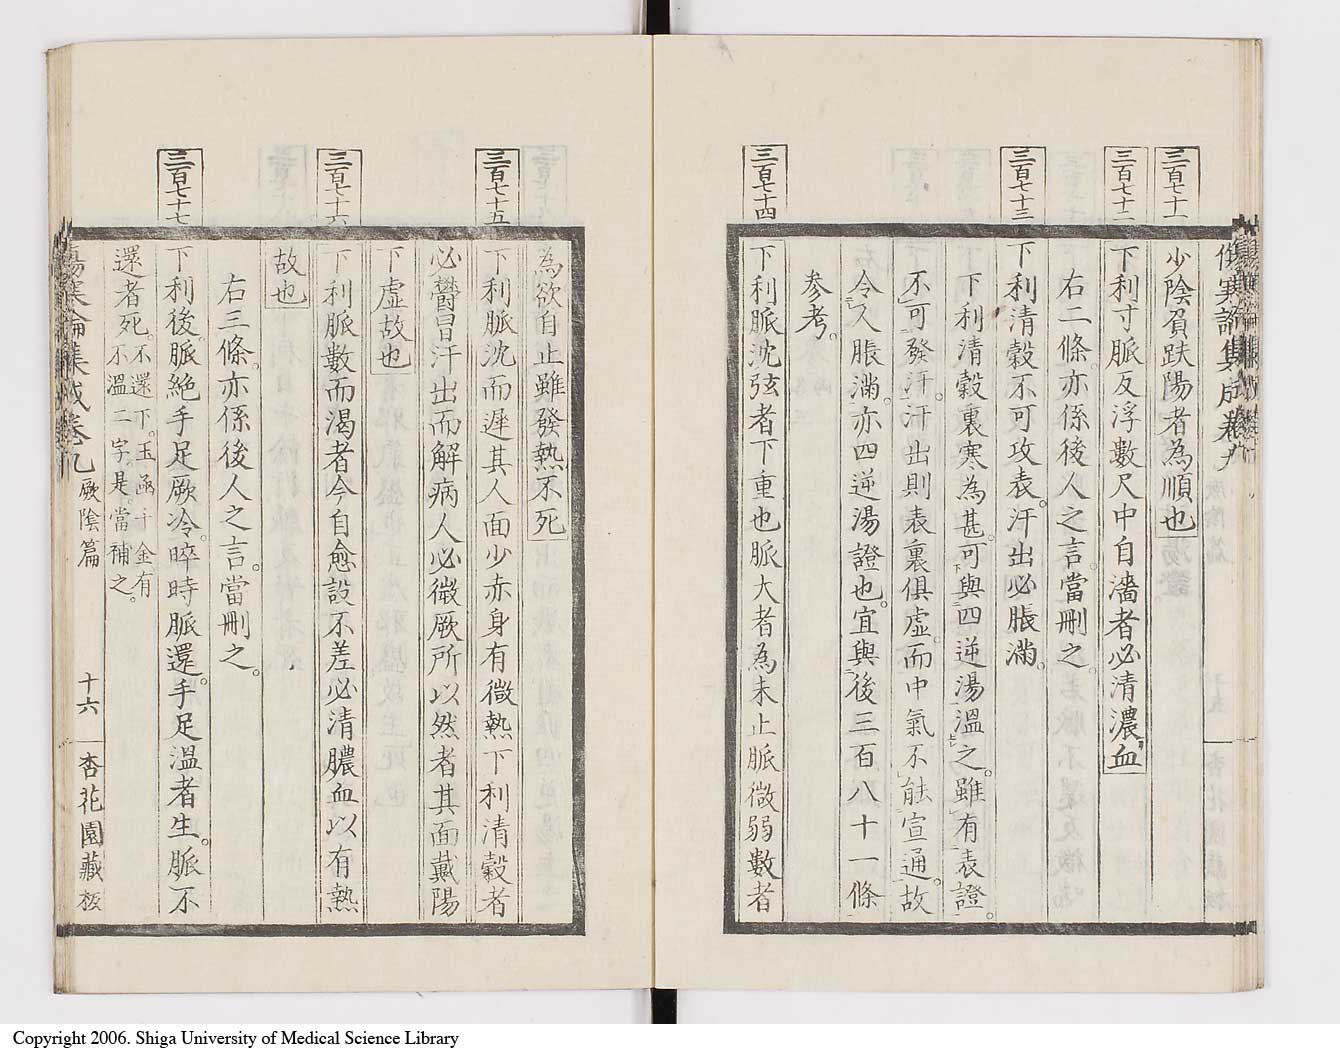 傷寒論集成卷九
三百七十一
少陰負趺陽者為順也
三百七十二
下利寸脈反浮數尺中自濇者必清濃血
右二條亦係後人之言當刪之。
三百七十三
下利清穀不可攻表。汗出必脹滿。
下利清穀裏寒為甚。可與四逆湯溫之。雖有表證。
不可發汗。汗出則表裏俱虛。而中氣不能宣通。故
令人脹滿。亦四逆湯證也。宜與後三百八十一條
參考。
三百七十四
下利脈沈弦者下重也脈大者為未止脈微弱數者
為欲自止雖發熱不死
三百七十五
下利脈沈而遲其人面少赤身有微熱下利清穀者
必鬱冒汗出而解病人必微厥所以然者其面戴陽
下虛故也
三百七十六
下利脈數而渴者今自愈設不差必清膿血以有熱
故也
右三條。亦係後人之言。當刪之。
三百七十七
下利後。脈絕手足厥冷。晬時脈還。手足溫者生。脈不
還者死。不還下。玉函千金有
不溫二字。是。當補之。
傷寒論集成卷九 厥陰篇 十六 杏花園藏板
Copyright 2006. Shiga University of Medical Science Library